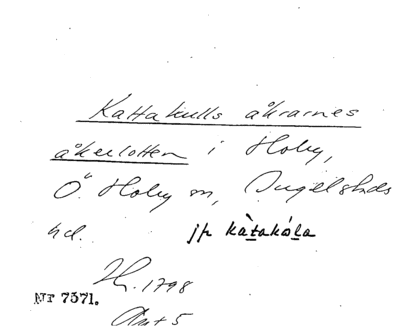 Kattakulls åkrarnes
åkerlotten i Hoby,
Ö. Hoby sn, Ingelstads
hd. jfr kàtakóla
H. 1798
Nr 7571.
Akt 5